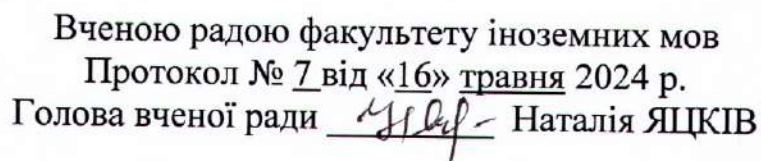 Вченою радою факультету іноземних мов
Протокол № 7 від «16» травня 2024 р.
Голова вченої ради Наталія ЯЦКІВ